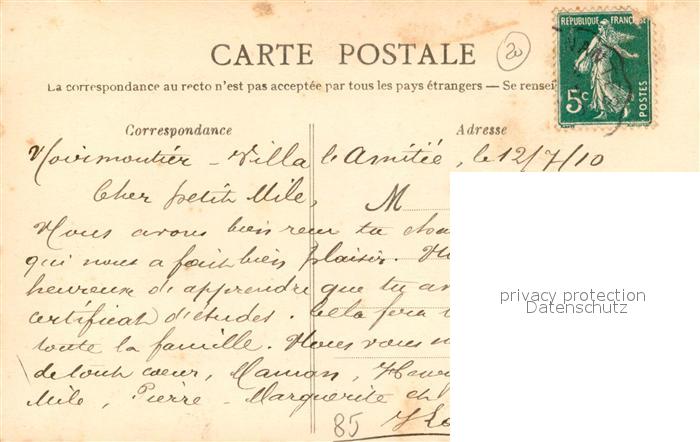 20
RÉPUBLIQUE FRANÇAISE
5c
POSTES
CARTE POSTALE
La correspondance au recto n'est pas acceptée par tous les pays étrangers — Se rensei
Correspondance
Adresse
Noirmoutier - Villa l'Amitié, le 12/7/10
Cher petit Mile,
M
Nous avons bien reçu ta
qui nous a fait bien plaisir.
heureuse d'apprendre que tu
certificat d'études. Cela fera
toute la famille. Nous vous
de tout cœur, Maman,
Mile, Pierre - Marguerite et
85
privacy protection
Datenschutz